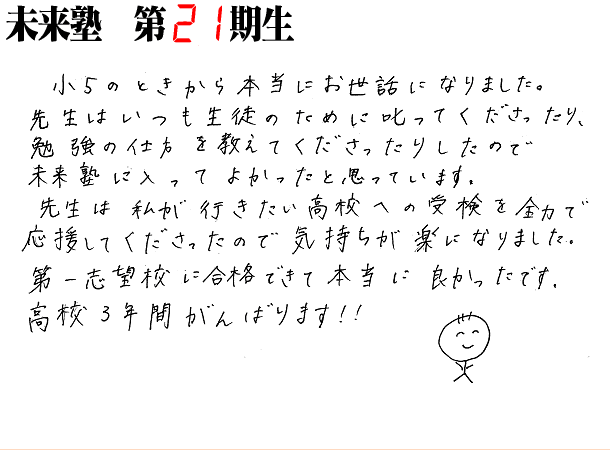 未来塾 第21期生
小5のときから本当にお世話になりました。
先生はいつも生徒のために叱ってくださったり、
勉強の仕方を教えてくださったりしたので
未来塾に入ってよかったと思っています。
先生は私が行きたい高校への受検を全力で
応援してくださったので気持ちが楽になりました。
第一志望校に合格できて本当に良かったです。
高校3年間がんばります!!